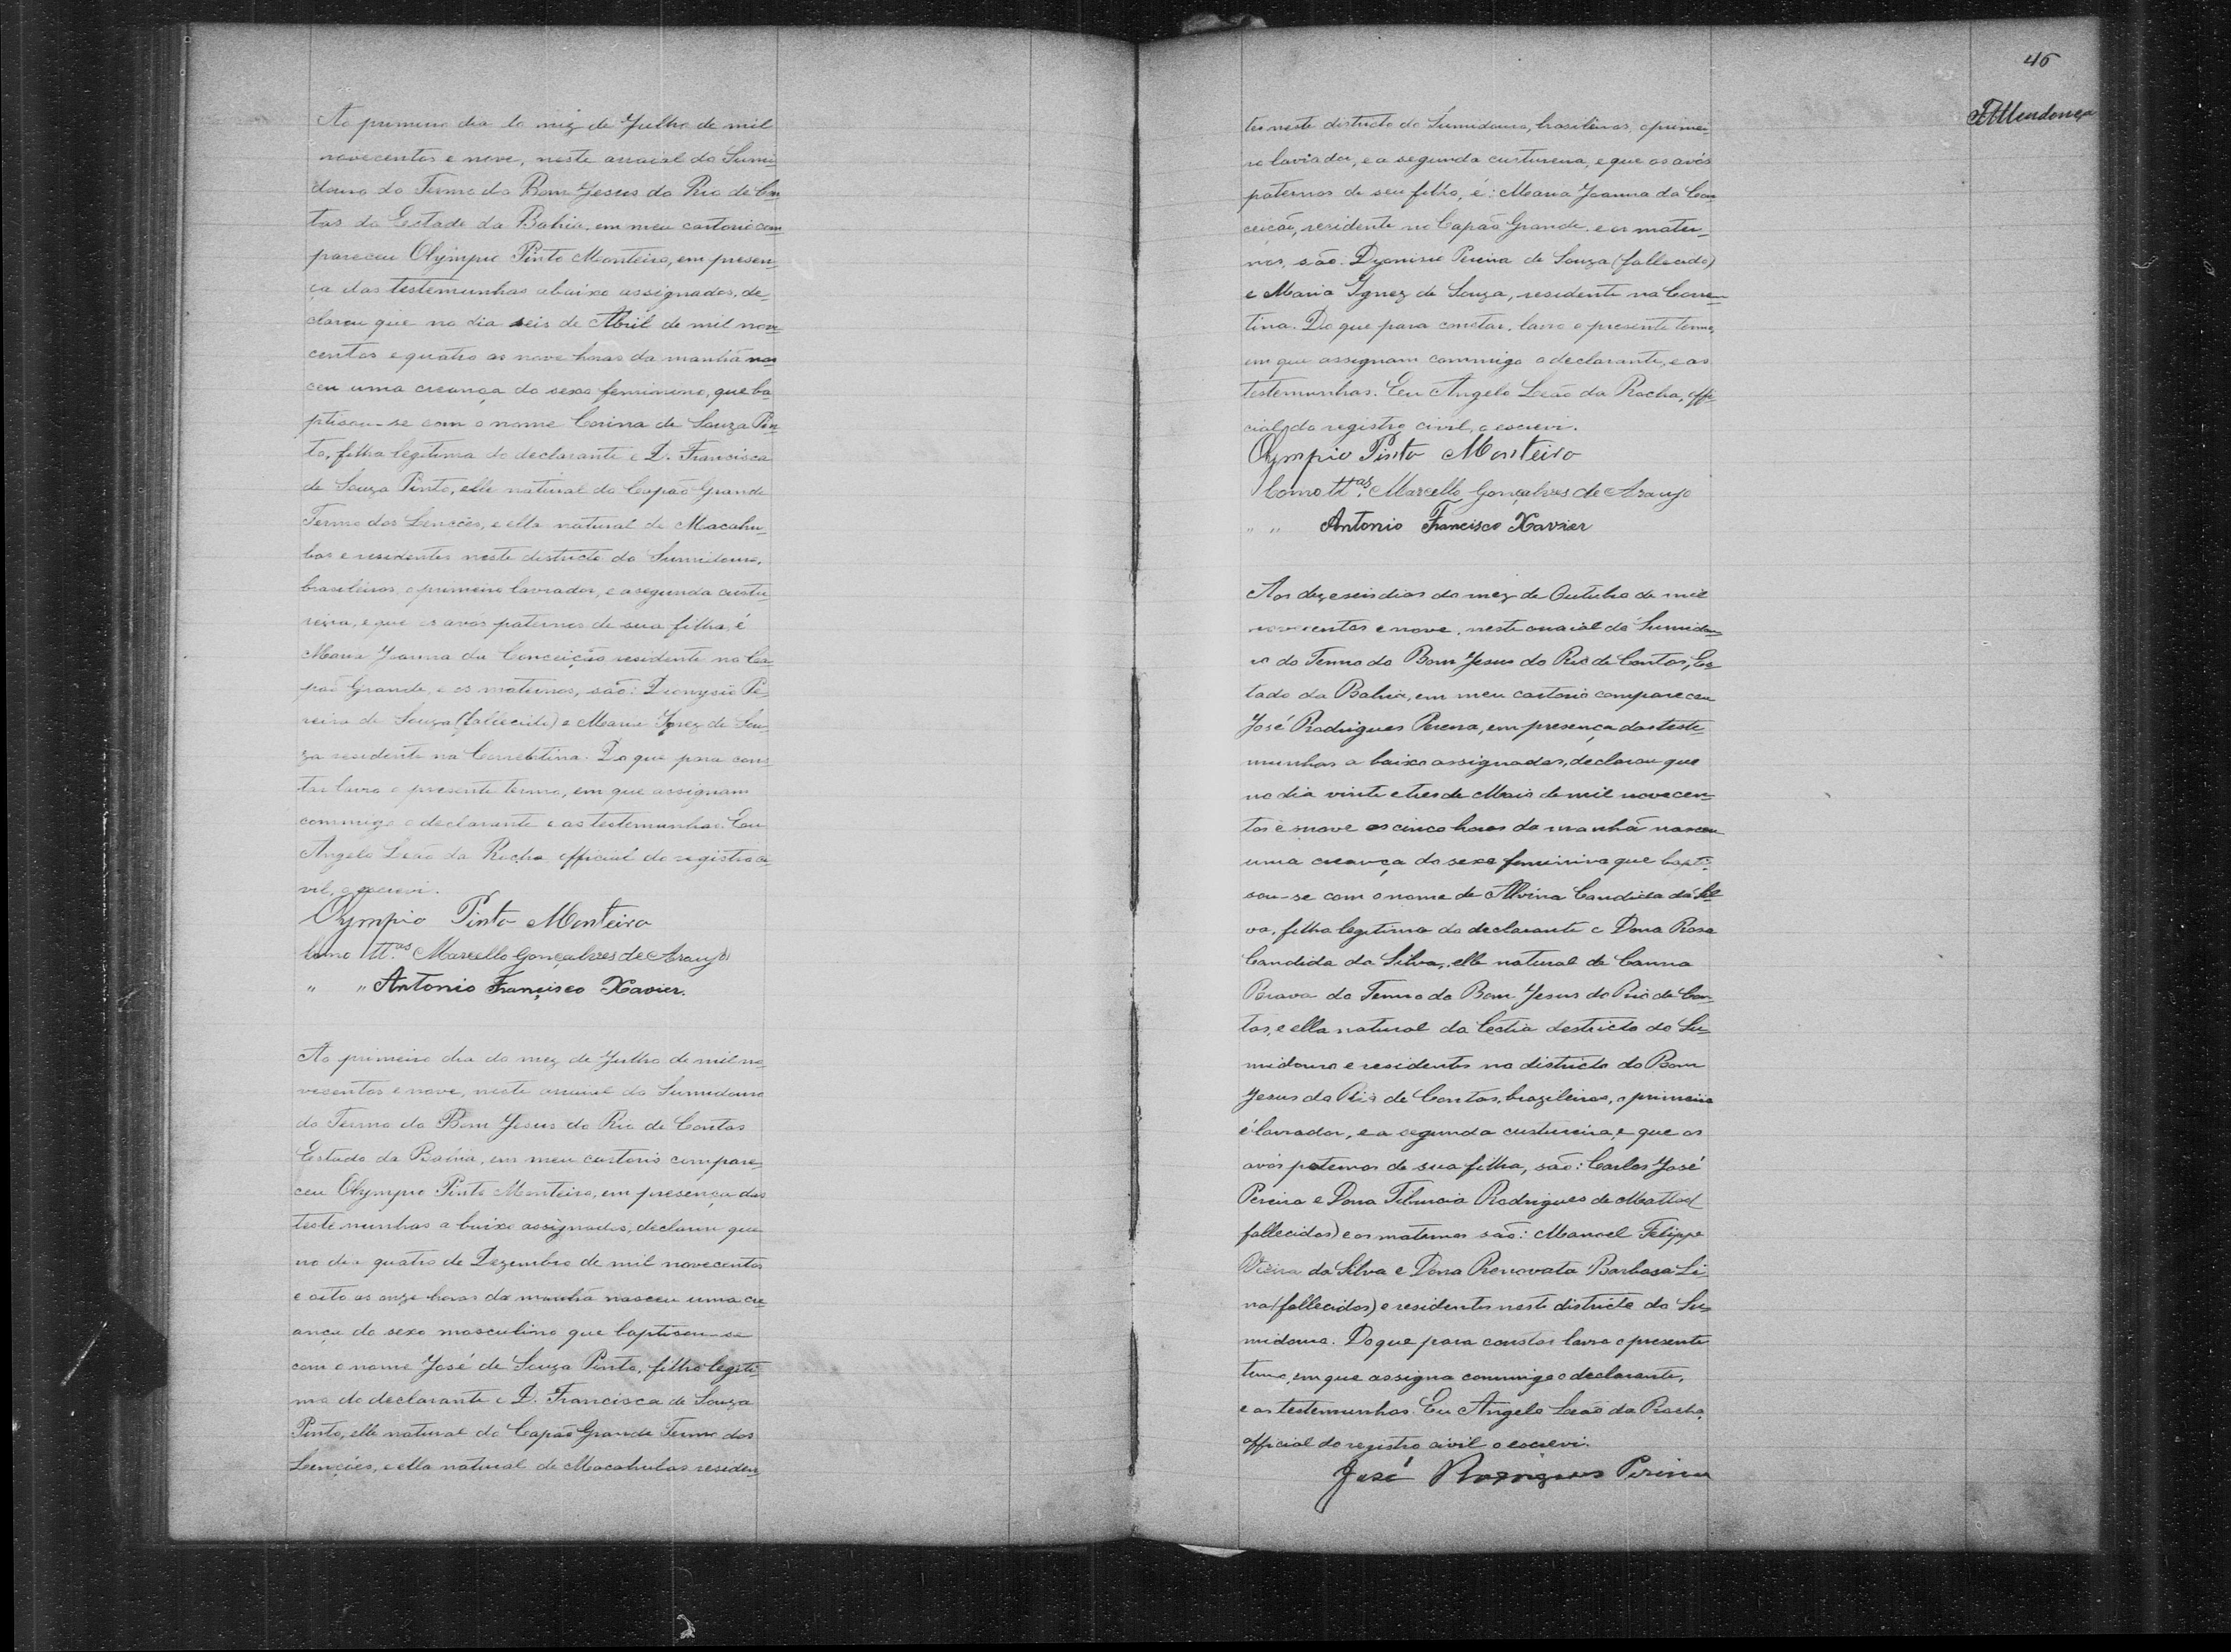 Ao primeiro dia do mez de Julho de mil
novecentos e nove, neste arraial do Sumi-
douro do Termo do Bom Jesus do Rio de Con-
tas do Estado da Bahia, em meu cartorio com-
pareceu Olympio Pinto Monteiro, em presen-
ça das testemunhas abaixo assignadas, de-
clarou que no dia seis de Abril de mil nove-
centos e quatro as nove horas da manhã nas-
ceu uma creança do sexo feminino, que ba-
ptisou-se com o nome Corina de Souza Pin-
to, filha legitima do declarante e D. Francisca
de Souza Pinto, elle natural do Capão Grande
Termo dos Lencóes, e ella natural de Macahu-
bas e residentes neste districto do Sumidouro,
brasileiros, o primeiro lavrador, e a segunda custu-
reira, e que os avós paternos de sua filha, é
Maria Joanna da Conceição residente no Ca-
pão Grande, e os maternos, são: Dionysio Pe-
reira de Souza (fallecido) e Maria Ignez de Sou-
za residente na Correntina. Do que para cons-
tar lavro o presente termo, em que assignam
commigo o declarante e as testemunhas. Eu
Angelo Leão da Rocha, official do registro ci-
vil, o escrevi.
Olympio Pinto Monteiro
Como ttas Marcello Gonçalves de Araujo
" " Antonio Francisco Xavier.
Ao primeiro dia do mez de Julho de mil no-
vesentos e nove, neste arraial do Sumidouro
do Termo do Bom Jesus do Rio de Contas
Estado da Bahia, em meu cartorio compare-
ceu Olympio Pinto Monteiro, em presença das
testemunhas a baixo assignadas, declarou que
no dia quatro de Dezembro de mil novecentos
e oito as onze horas da manhã nasceu uma cre-
ança do sexo masculino que baptisou-se
com o nome José de Souza Pinto, filho legiti-
mo do declarante e D. Francisca de Souza
Pinto, elle natural do Capão Grande Termo dos
Lençóes, e ella natural de Macahubas residen-
46
tes neste districto do Sumidouro, brasileiros, o primei-
ro lavrador, e a segunda custureira, e que os avós
paternos de seu filho, é: Maria Joanna da Con-
ceicão, residente no Capão Grande, e os mater-
nos, são: Dyonisio Pereira de Souza (fallecido)
e Maria Ignez de Souza, residente na Corren-
tina. Do que para constar, lavro o presente termo,
em que assignam commigo o declarante, e as
testemunhas. Eu Angelo Leão da Rocha, offi-
cial do registro civil, o escrevi.
Olympio Pinto Monteiro
Como ttas. Marcello Gonçalves de Araujo
" " Antonio Francisco Xavier
Aos dezeseis dias do mez de Outubro de mil
novecentos e nove, neste arraial do Sumidou-
ro do Termo do Bom Jesus do Rio de Contas, Es-
tado da Bahia, em meu cartorio compareceu
José Rodrigues Pereira, em presença das teste-
munhas a baixo assignadas, declarou que
no dia vinte e tres de Maio de mil novecen-
tos e nove as cinco horas da manhã nasceu
uma creança do sexo feminino que bapti-
sou-se com o nome de Alvina Candida da Sil-
va, filha legitima do declarante e Dona Rosa
Candida da Silva, elle natural de Canna
Brava do Termo do Bom Jesus do Rio de Con-
tas, e ella natural da destricto do Su-
midouro e residentes no districto do Bom
Jesus do Rio de Contas, brazileiros, o primeiro
é lavrador, e a segunda custureira, e que os
avós paternos de sua filha, são: Carlos José
Pereira e Dona Tiburcia Rodrigues de Mattos (
fallecidos) e os maternos são: Manoel Felippe
Vieira da Silva e Dona Renovata Barbosa Li-
na (fallecidos) e residentes neste districto do Su-
midouro. Do que para constar lavro o presente
termo, em que assigna commigo o declarante,
e as testemunhas. Eu Angelo Leão da Rocha,
official do registro civil o escrevi.
José Rodrigues Pereira